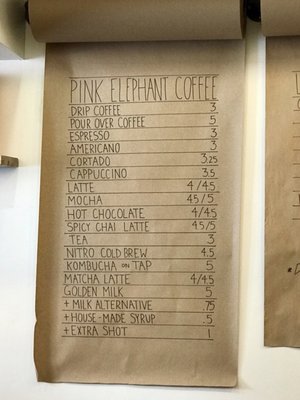 PINK ELEPHANT COFFEE
DRIP COFFEE 3
POUR OVER COFFEE 5
ESPRESSO 3
AMERICANO 3
CORTADO 3.25
CAPPUCCINO 3.5
LATTE 4/4.5
MOCHA 4.5/5
HOT CHOCOLATE 4/4.5
SPICY CHAI LATTE 4.5/5
TEA 3
NITRO COLD BREW 4.5
KOMBUCHA ON TAP 5
MATCHA LATTE 4/4.5
GOLDEN MILK 5
+ MILK ALTERNATIVE .75
+ HOUSE-MADE SYRUP .5
+ EXTRA SHOT 1